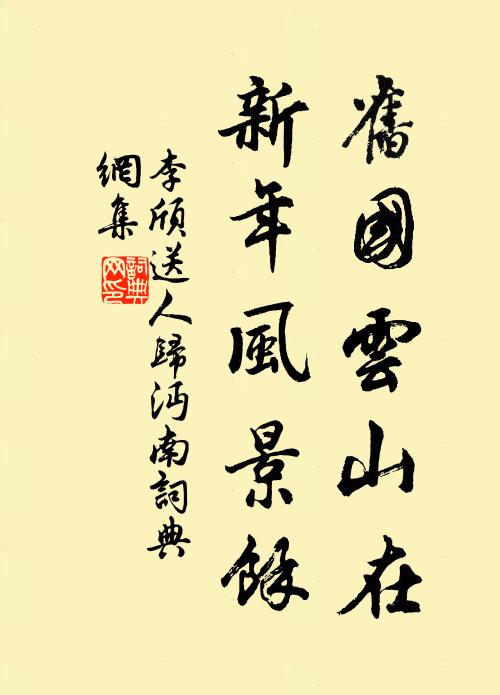 舊國雲山在
新年風景餘
李頎送人歸沔南詞典
網集
詞典
网印